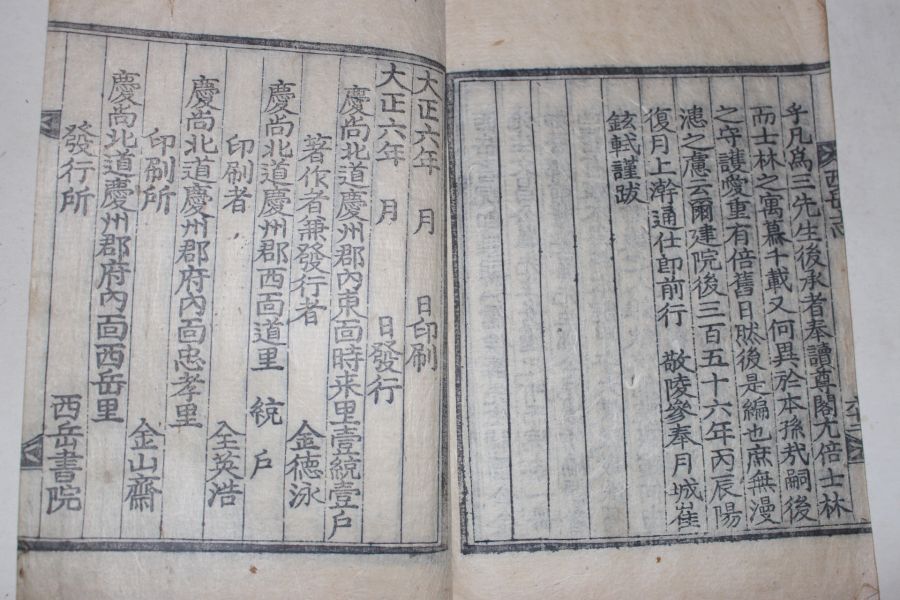 乎凡爲三先生後承者奉讀尊閣尤倍士林
而士林之寓慕千載又何異於本孫哉嗣後
之守護愛重有倍舊日然後是編也庶無漫
漶之慮云爾建院後三百五十六年丙辰陽
復月上澣通仕郎前行 敬陵參奉月城崔
鉉軾謹跋
大正六年 月 日印刷
大正六年 月 日發行
慶尚北道慶州郡內東面時來里壹統壹戶
著作者兼發行者 金德泳
慶尚北道慶州郡西面道里 統 戶
印刷者 全英浩
慶尚北道慶州郡府內面忠孝里
印刷所 金山齋
慶尚北道慶州郡府內面西岳里
發行所 西岳書院